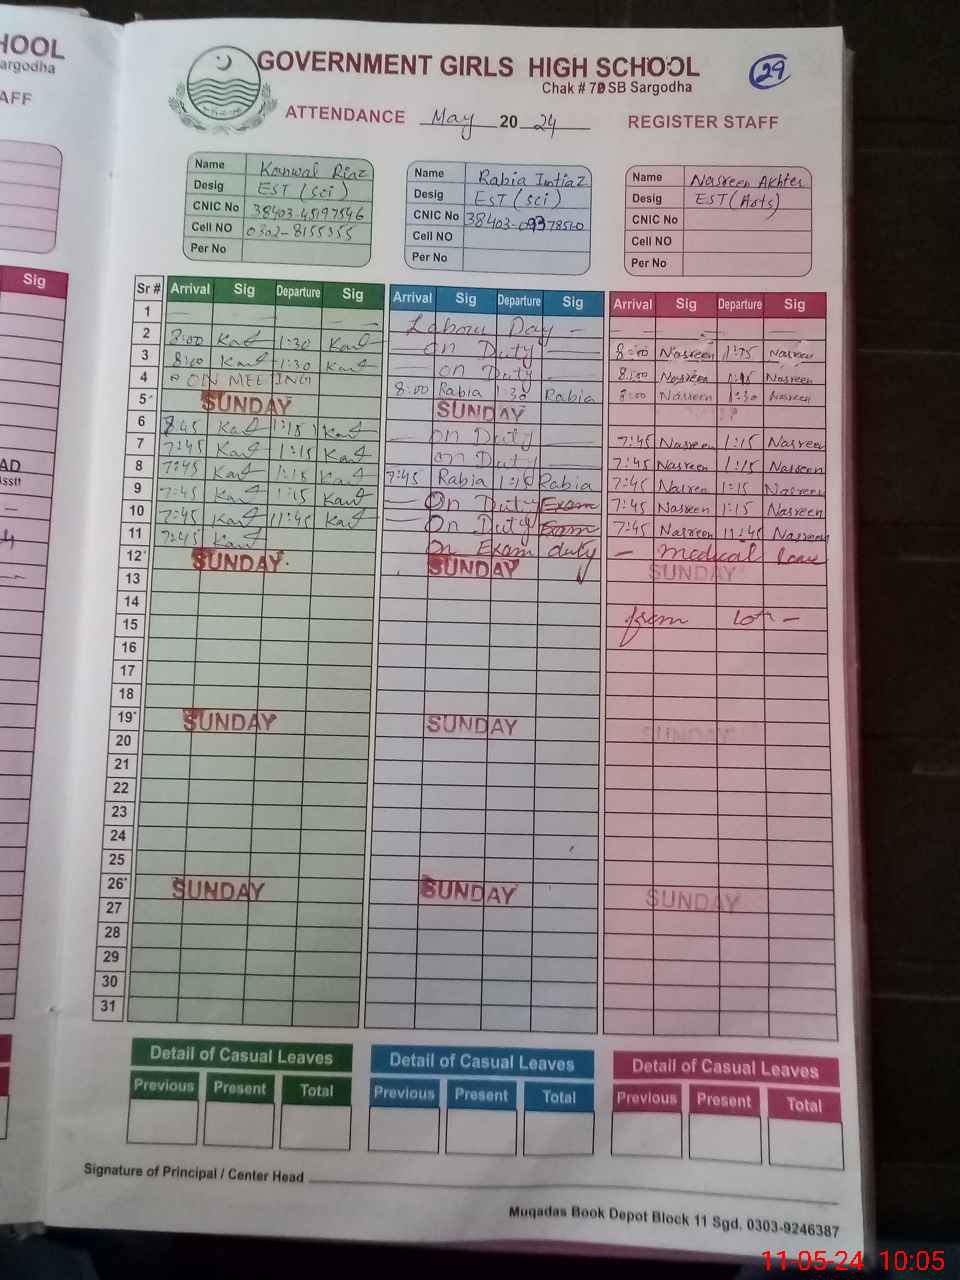 HOOL
argodha
AFF
Sig
GOVERNMENT GIRLS HIGH SCHOOL
29
Chak # 79 SB Sargodha
ATTENDANCE May 20 24 REGISTER STAFF
Name Kanwal Riaz
Desig EST (sci)
CNIC No 38403-45197546
Cell NO 0302-8155355
Per No
Name Rabia Imtiaz
Desig EST (sci)
CNIC No
Cell NO
Per No
Name Nasreen Akhter
Desig EST (Arts)
CNIC No
Cell NO
Per No
Sr # Arrival Sig Departure Sig Arrival Sig Departure Sig Arrival Sig Departure Sig
1 Labour Day
2 8:00 1:30 On Duty 8:00 Nasreen 1:15 Nasreen
3 8:00 1:30 on Duty 8:00 Nasreen 1:15 Nasreen
4 ON MEETING 8:00 Rabia 1:30 Rabia 8:00 Nasreen 1:30 Nasreen
5 SUNDAY SUNDAY
6 1:15 on Duty 7:45 Nasreen 1:15 Nasreen
7 7:45 1:15 on Duty 7:45 Nasreen 1:15 Nasreen
8 7:45 1:15 7:45 Rabia 1:15 Rabia 7:45 Nasreen 1:15 Nasreen
9 7:45 1:15 On Duty Exam 7:45 Nasreen 1:15 Nasreen
10 7:45 11:45 On Duty Exam 7:45 Nasreen 11:45 Nasreen
11 7:45 On Exam duty - medical leave
12 SUNDAY SUNDAY SUNDAY
13
14 from
15
16
17
18
19 SUNDAY SUNDAY SUNDAY
20
21
22
23
24
25
26 SUNDAY SUNDAY SUNDAY
27
28
29
30
31
Detail of Casual Leaves Detail of Casual Leaves Detail of Casual Leaves
Previous Present Total Previous Present Total Previous Present Total
Signature of Principal / Center Head
Muqadas Book Depot Block 11 Sgd. 0303-9246387
11-05-24 10:05